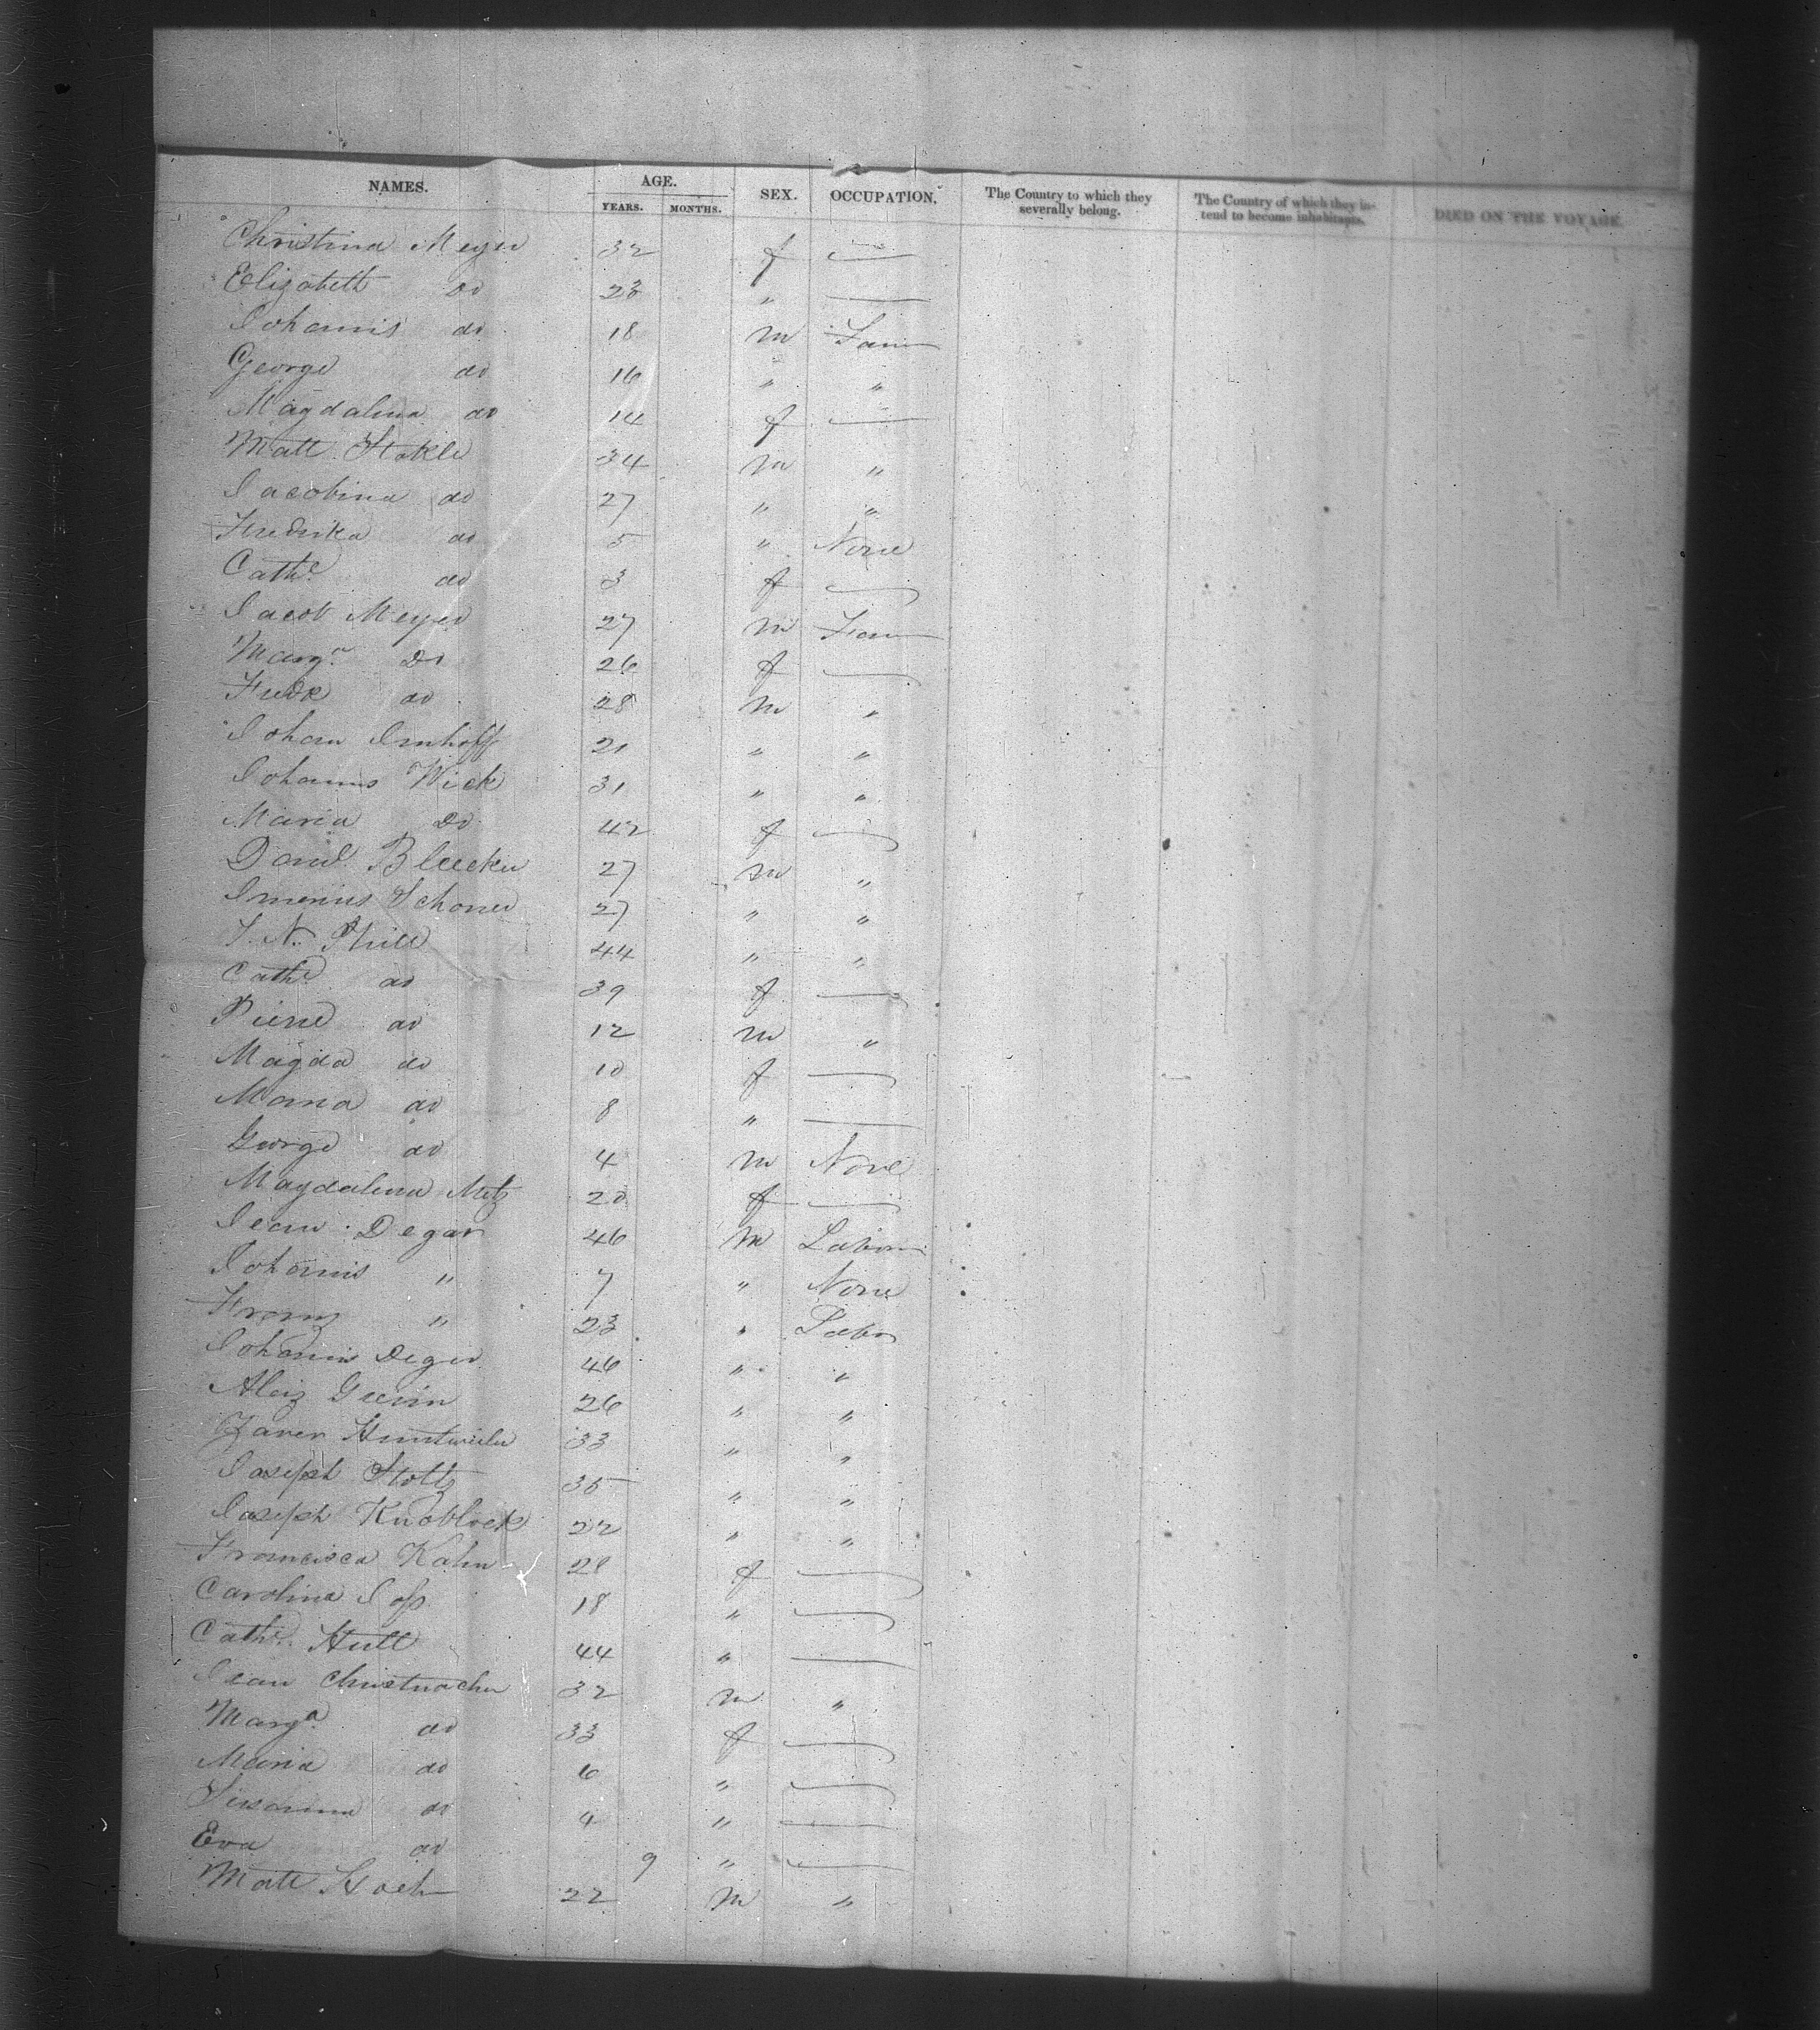 NAMES. AGE. SEX. OCCUPATION. The Country to which they severally belong. The Country of which they intend to become inhabitants. DIED ON THE VOYAGE
YEARS. MONTHS.
Christina Meyer 32 f —
Elizabeth do 23 " —
Johannis do 18 m Farm
George do 16 " "
Magdalina do 14 f —
Matt Stokle 34 m "
Jacobina do 27 " "
Fredrika do 5 " None
Cathe do 3 f —
Jacob Meyer 27 m Farm
Marga Do 26 f —
Fredk do 28 m "
Johan Imhoff 21 " "
Johannis Wick 31 " "
Maria Do 42 f —
Danl Bleecker 27 m "
Schoner 27 " "
J. N. 44 " "
Cathe do 39 f —
Pierre do 12 m "
Magda do 10 f —
Maria do 8 " —
George do 4 m None
Magdalena Metz 20 f —
Jean Degar 46 m Labor
Johannis " 7 " None
Franz " 23 " Labor
Johannis Deger 46 " "
Aloiz 26 " "
Xaver Huntwieler 33 " "
Joseph Stoltz 35 " "
Joseph Knoblock 22 " "
Francisca Kahn 28 f —
Carolina Joss 18 " —
Cathe Hull 44 " —
Jean Christnacher 32 m "
Marga do 33 f —
Maria do 6 " —
Susanna do 4 " —
Eva do 9 " —
Matt Koch 22 m "